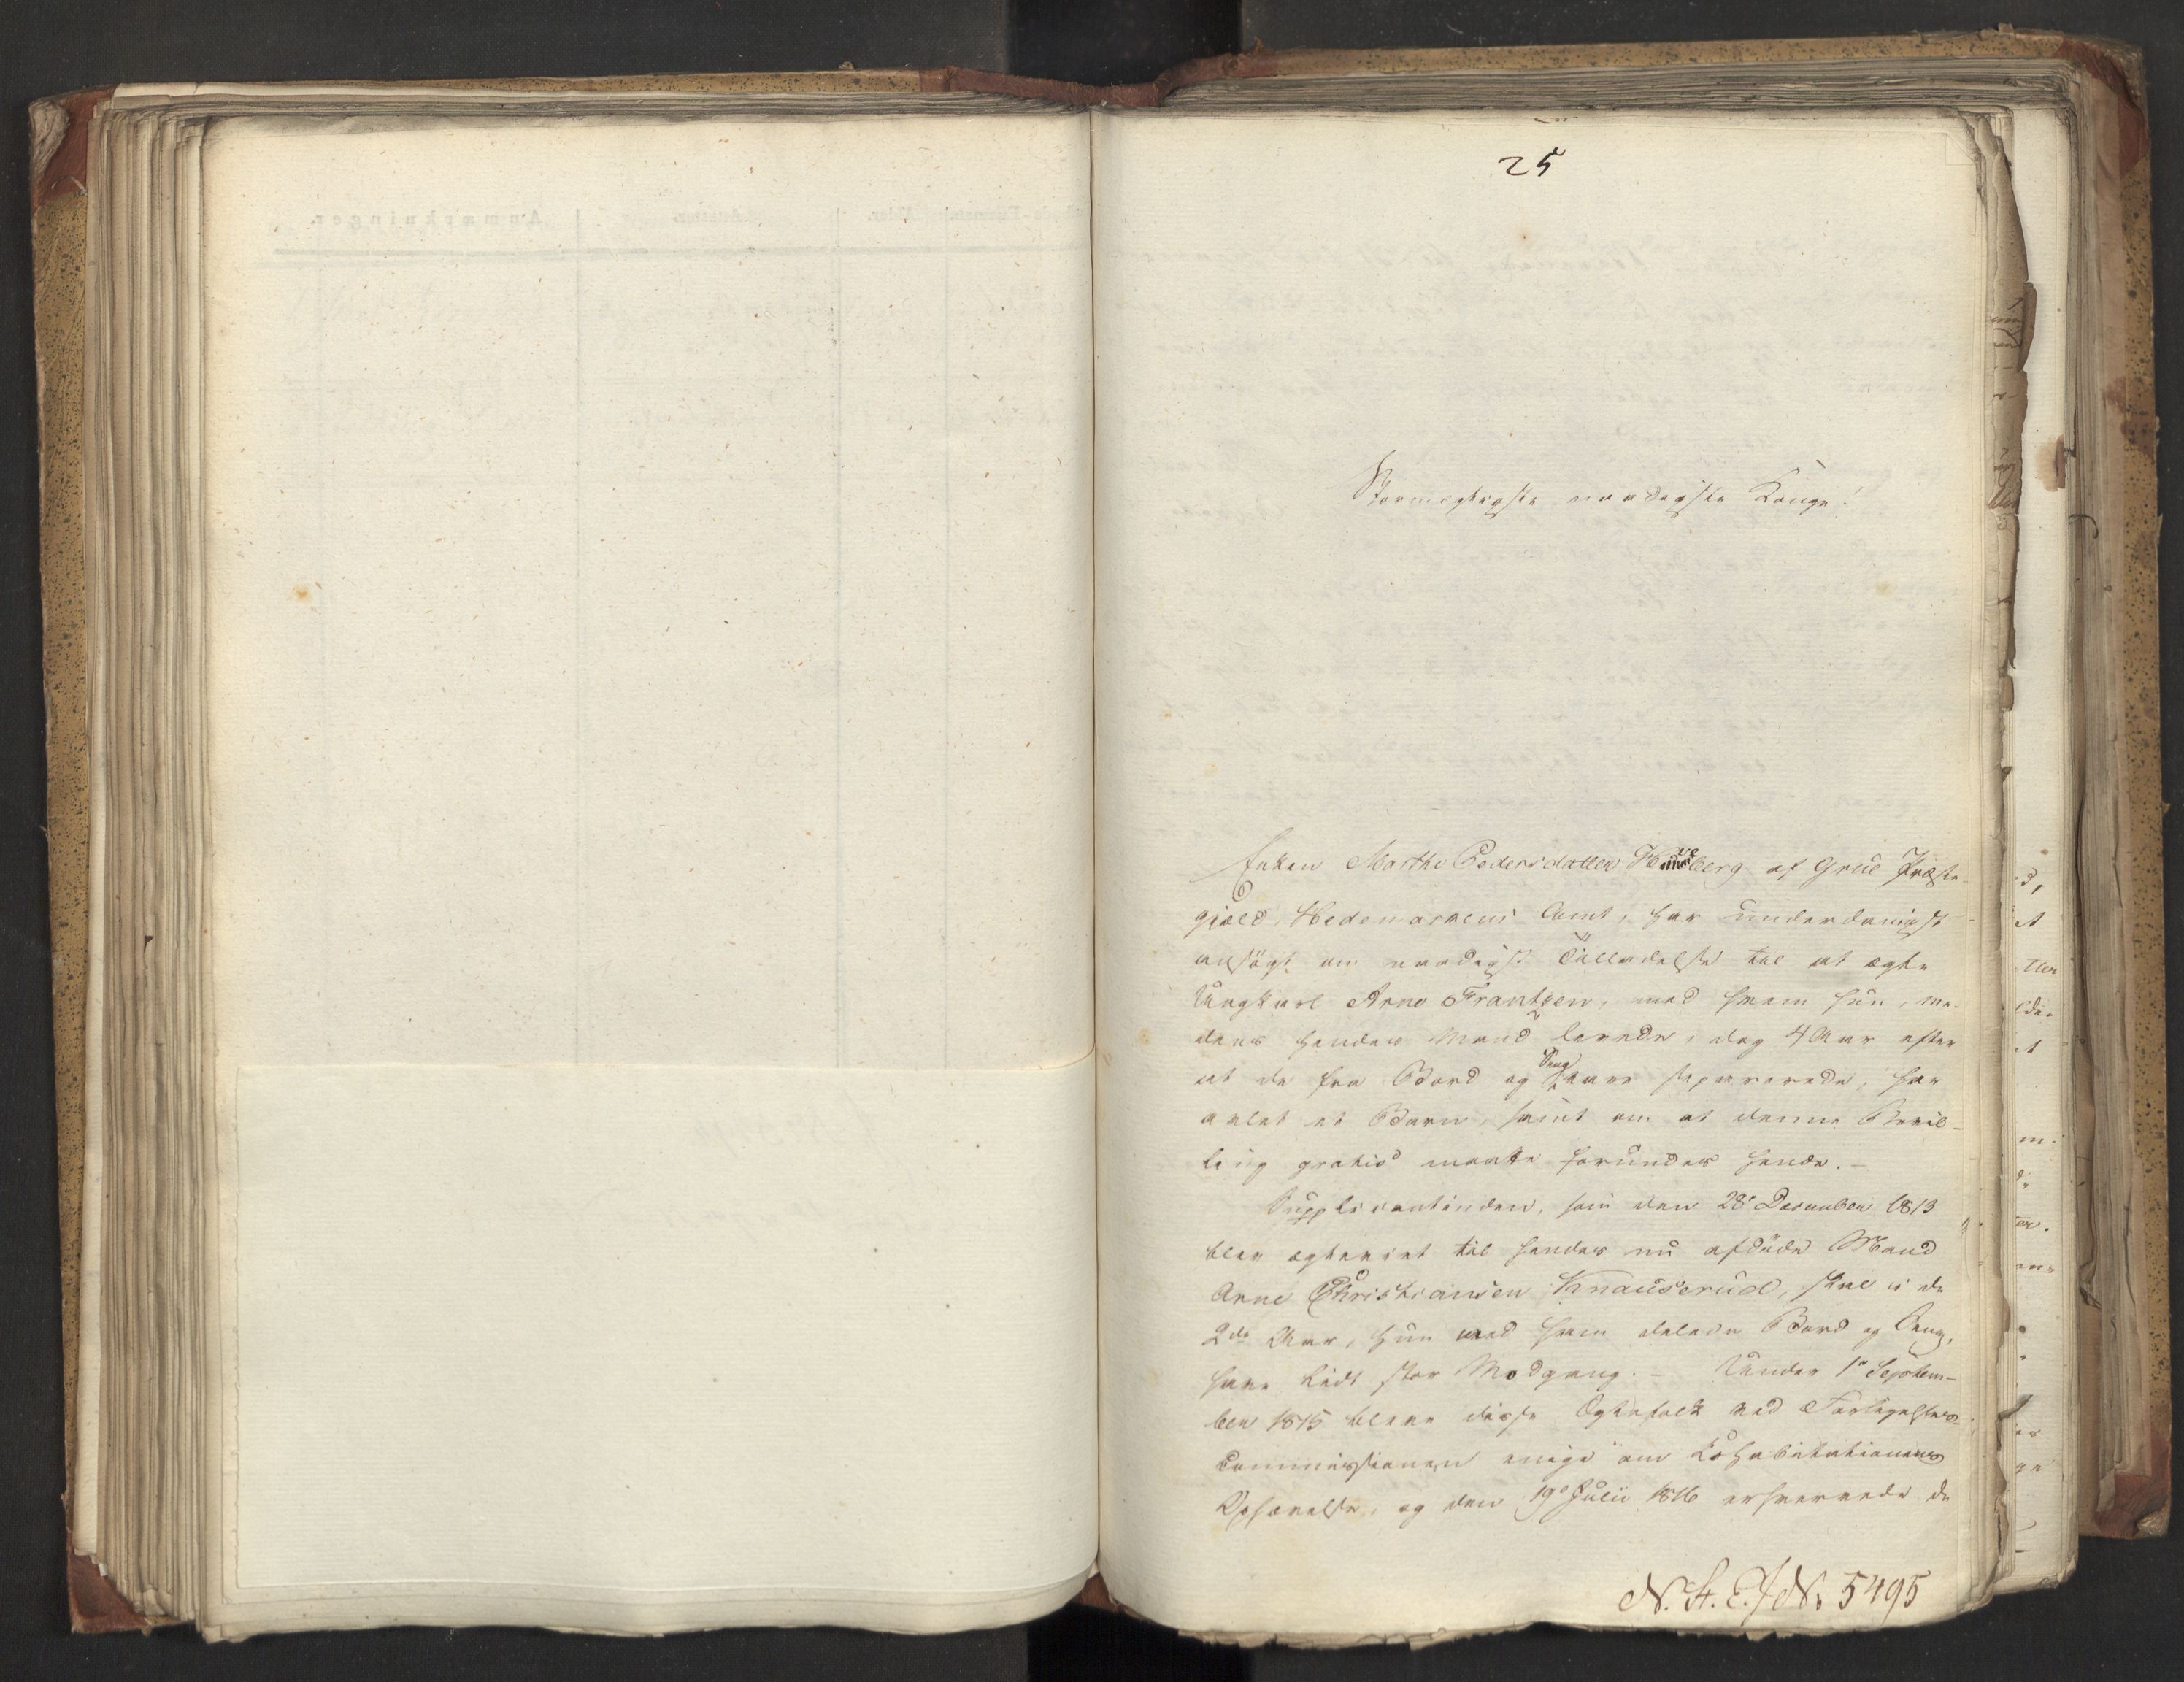 25
Stormægtigste naadigste Konge!
Enken Marthe Pedersdatter Haveberg af Grue Præste-
gjæld, Hedemarkens Amt, har underdanigst
ansøgt om naadigst Tilladelse til at ægte
Ungkarl Arne Frantzen, med hvem hun, me-
dens hendes Mand levede, dog 4 Aar efter
at de fra Bord og Seng vare separerede, har
avlet et Barn, samt om at denne Bevil-
ling gratis maatte forundes hende. –
Supplicantinden, som den 28de December 1813
blev ægteviet til hendes nu afdøde Mand
Arne Christiansen Knauserud, skal i de
2de Aar, hun med ham deelede Bord og Seng,
have lidt stor Modgang. – Under 1ste Septem-
ber 1815 bleve disse Ægtefolk ved Forligelses-
commissionen enige om Cohabitationens
Ophævelse, og den 19de Julii 1816 erhvervede de
N. St. E. J No 5495